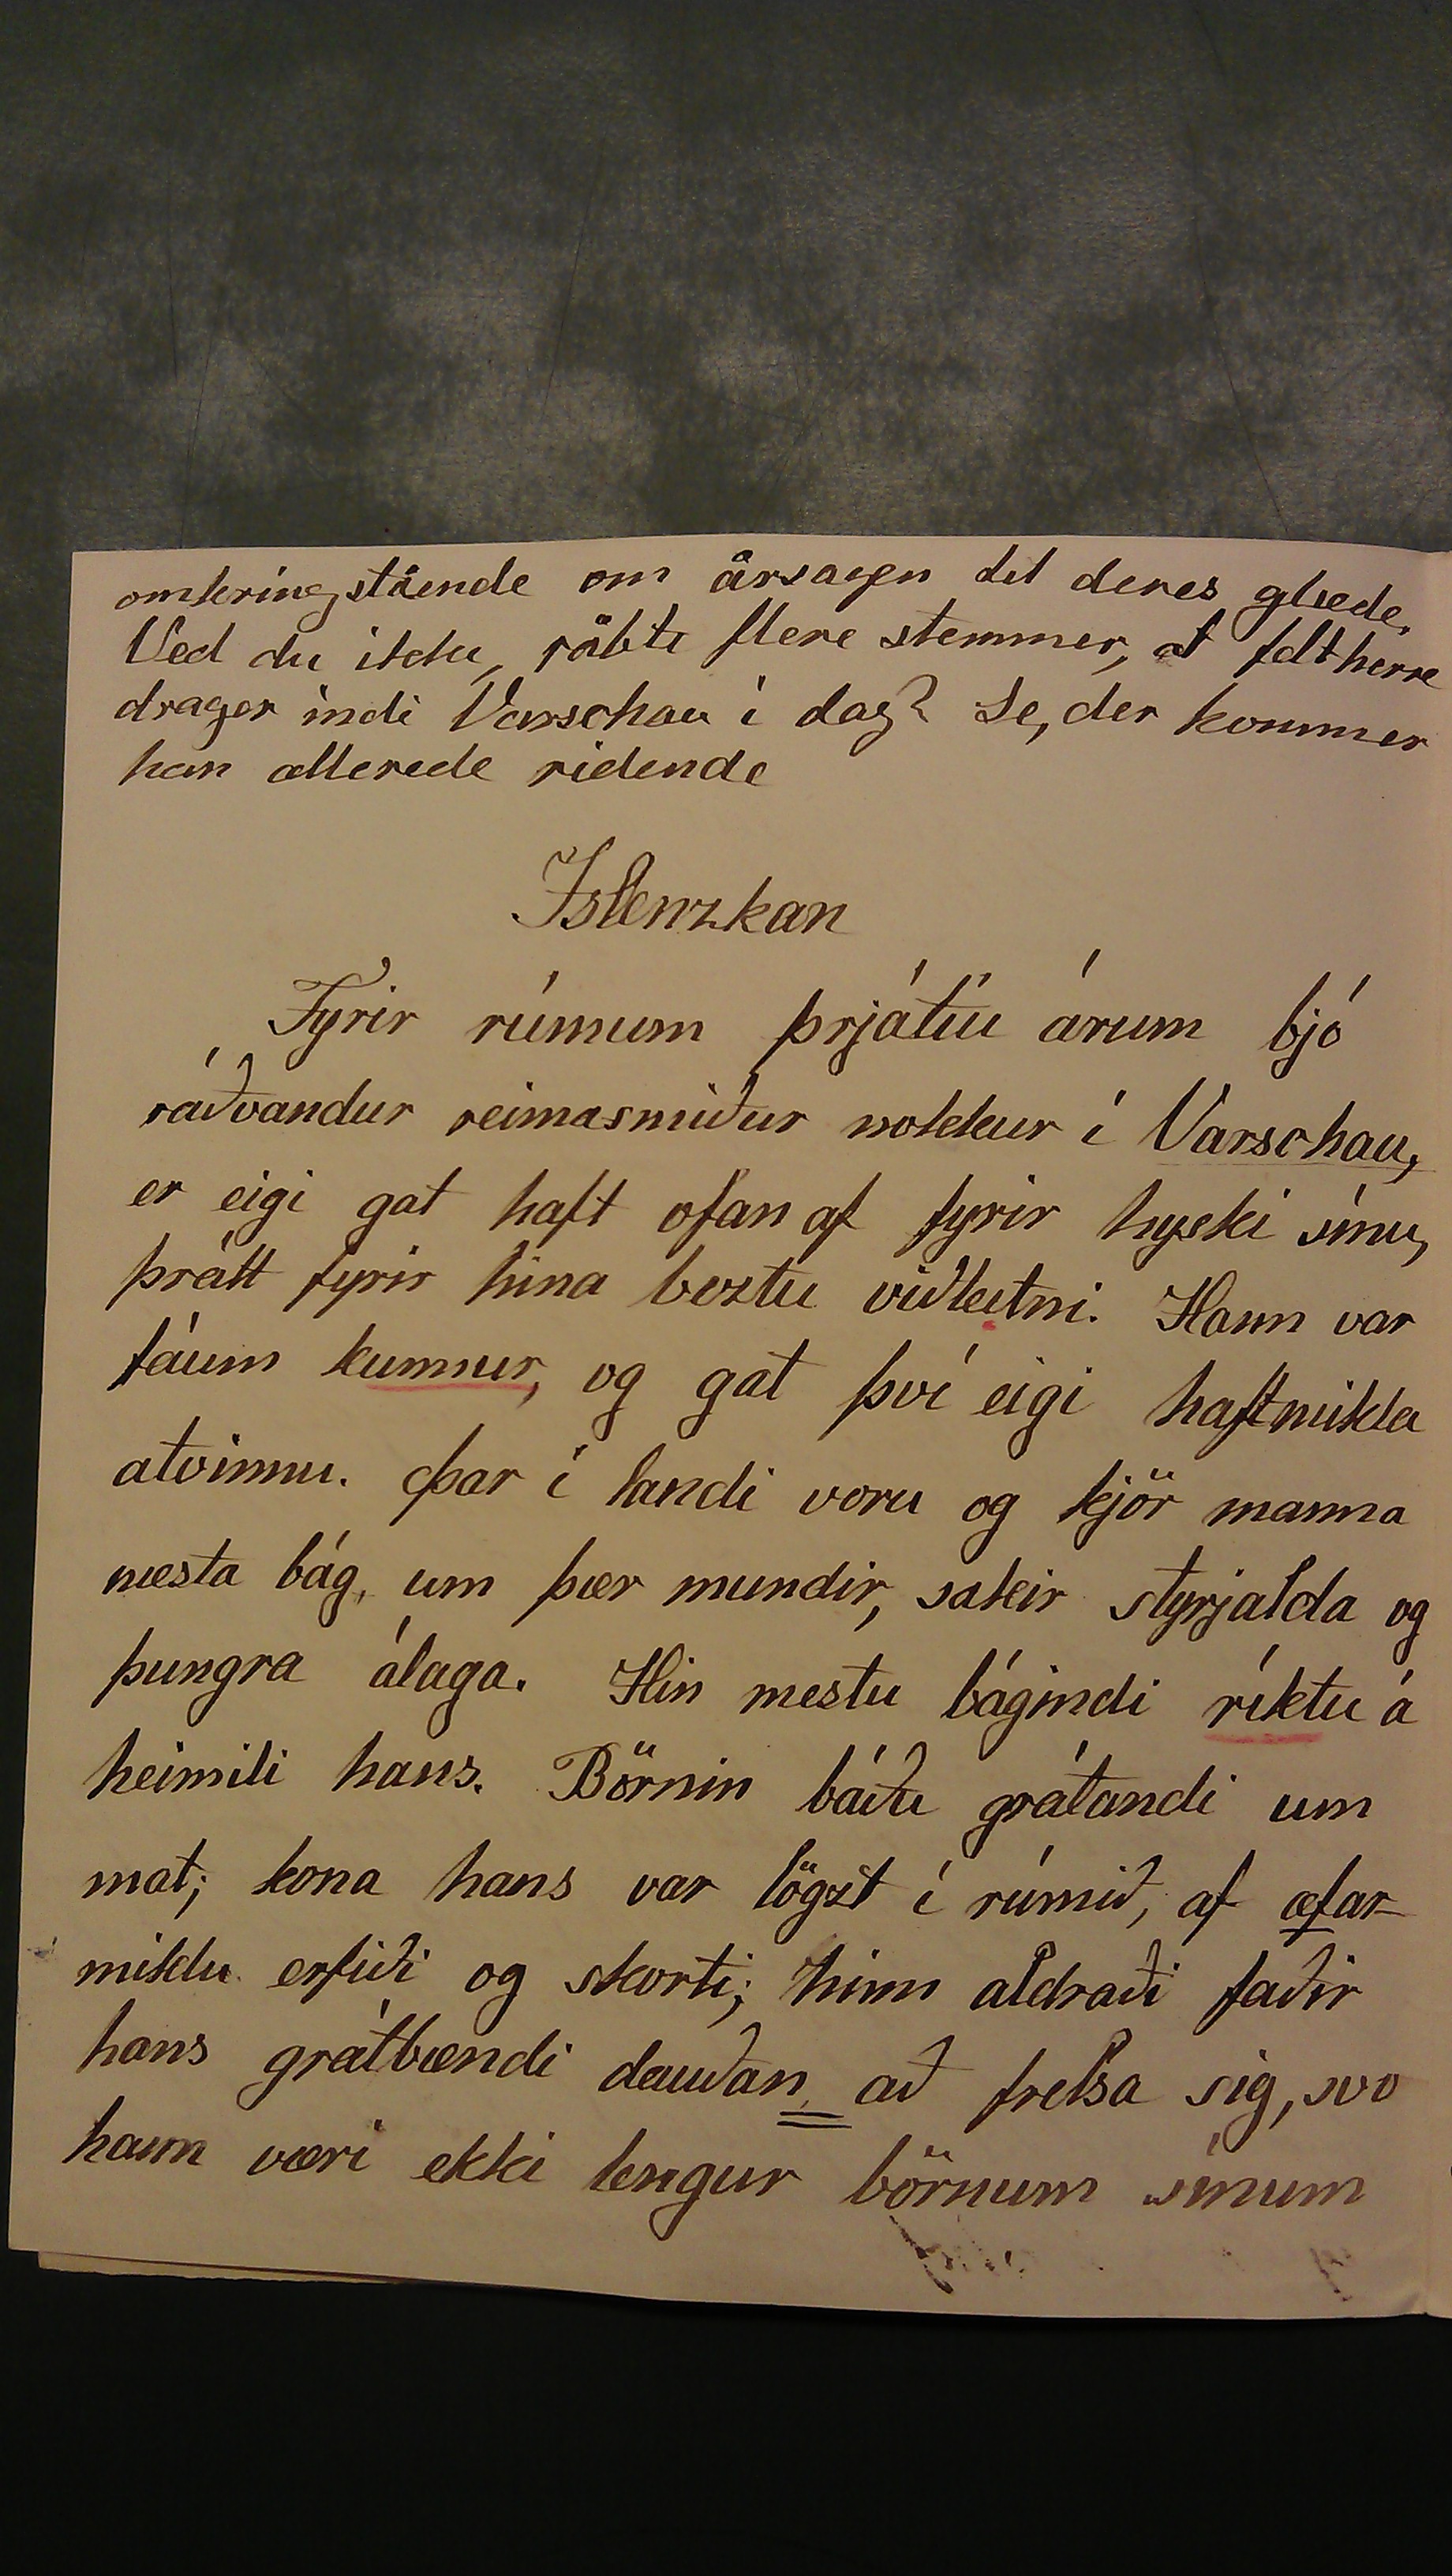 omkringstående om årsagen til deres glæde.
Ved du ikke, råbte flere stemmer, at feltherre
drager indi Varschau i dag? Se, der kommer
han allerede ridende
Íslenzkan
Fyrir rúmum þrjátíu árum bjó
ráðvandur reimasmiður nokkur í Varschau,
er eigi gat haft ofan af fyrir hyski sínu,
þrátt fyrir hina beztu viðleitni. Hann var
fáum kunnur, og gat því eigi haft mikla
atvinnu. Þar í landi voru og kjör manna
næsta bág, um þær mundir, sakir styrjalda og
þungra álaga. Hin mestu bágindi ríktu á
heimili hans. Börnin báðu grátandi um
mat; kona hans var lögzt í rúmið, af æfar-
miklu erfiði og skorti; hinn aldraði faðir
hans grátbændi dauðan, að frelsa sig, svo
hann væri ekki lengur börnum sínum